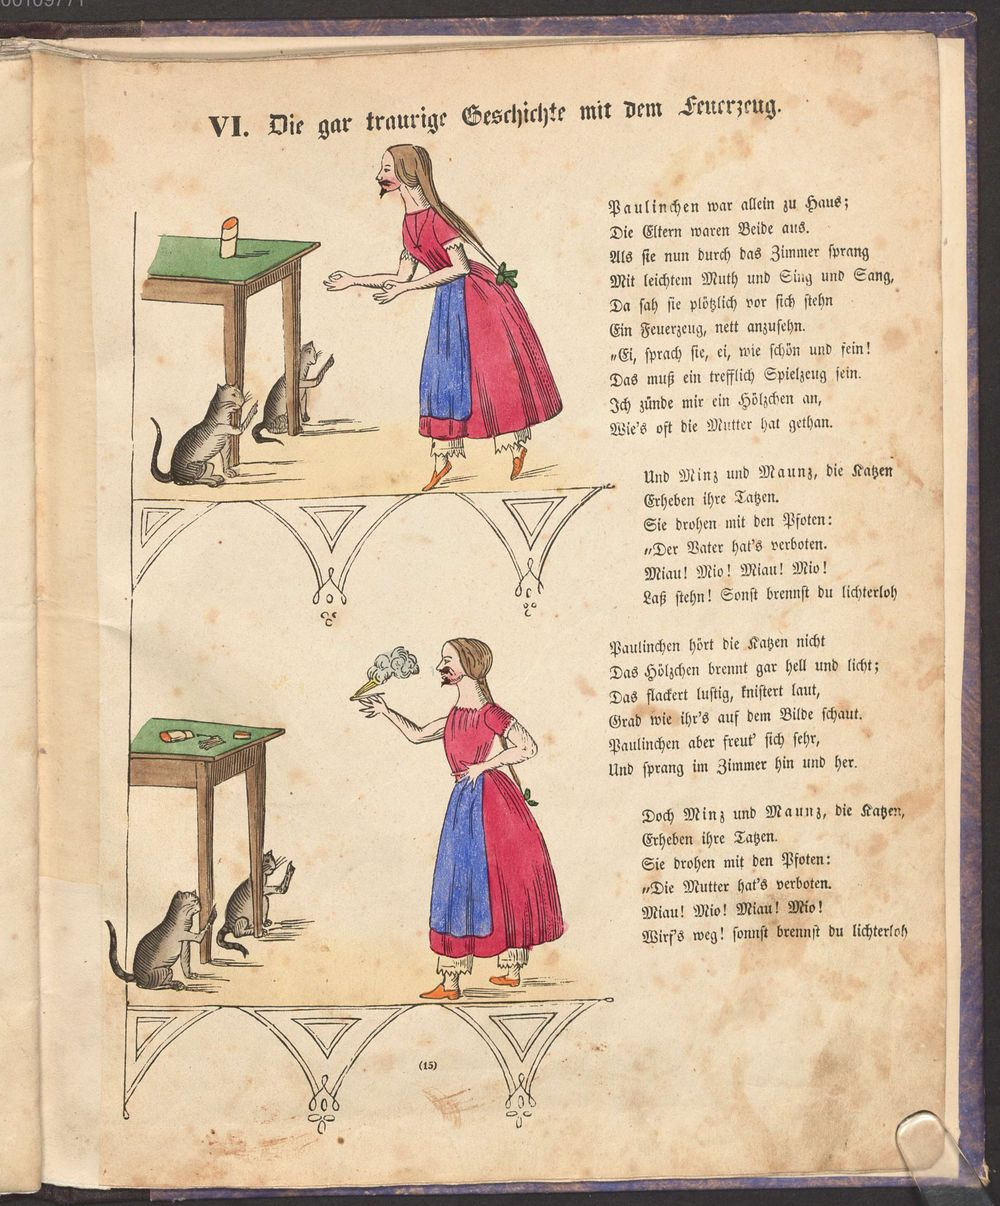 00109771
VI. Die gar traurige Geschichte mit dem Feuerzeug.
Paulinchen war allein zu Haus;
Die Eltern waren Beide aus.
Als sie nun durch das Zimmer sprang
Mit leichtem Muth und Sing und Sang,
Da sah sie plötzlich vor sich stehn
Ein Feuerzeug, nett anzusehn.
„Ei, sprach sie, ei, wie schön und fein!
Das muß ein trefflich Spielzeug sein.
Ich zünde mir ein Hölzchen an,
Wie's oft die Mutter hat gethan.
Und Minz und Maunz, die Katzen
Erheben ihre Tatzen.
Sie drohen mit den Pfoten:
„Der Vater hat's verboten.
Miau! Mio! Miau! Mio!
Laß stehn! Sonst brennst du lichterloh
Paulinchen hört die Katzen nicht
Das Hölzchen brennt gar hell und licht;
Das flackert lustig, knistert laut,
Grad wie ihr's auf dem Bilde schaut.
Paulinchen aber freut' sich sehr,
Und sprang im Zimmer hin und her.
Doch Minz und Maunz, die Katzen,
Erheben ihre Tatzen.
Sie drohen mit den Pfoten:
„Die Mutter hat's verboten.
Miau! Mio! Miau! Mio!
Wirf's weg! sonnst brennst du lichterloh
(15)